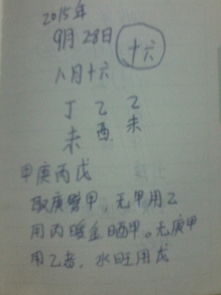 2015年
9月28日
十六
八月十六
丁乙乙
未酉未
甲庚丙戊
取庚劈甲，无甲用乙
用丙暖金晒甲。无庚甲
用乙者，水旺用戊